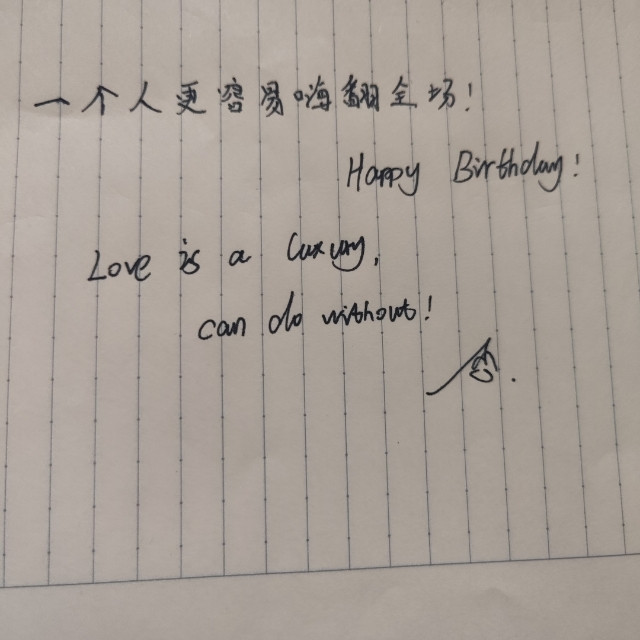 一个人更容易嗨翻全场!
Happy Birthday!
Love is a luxury,
can do without!